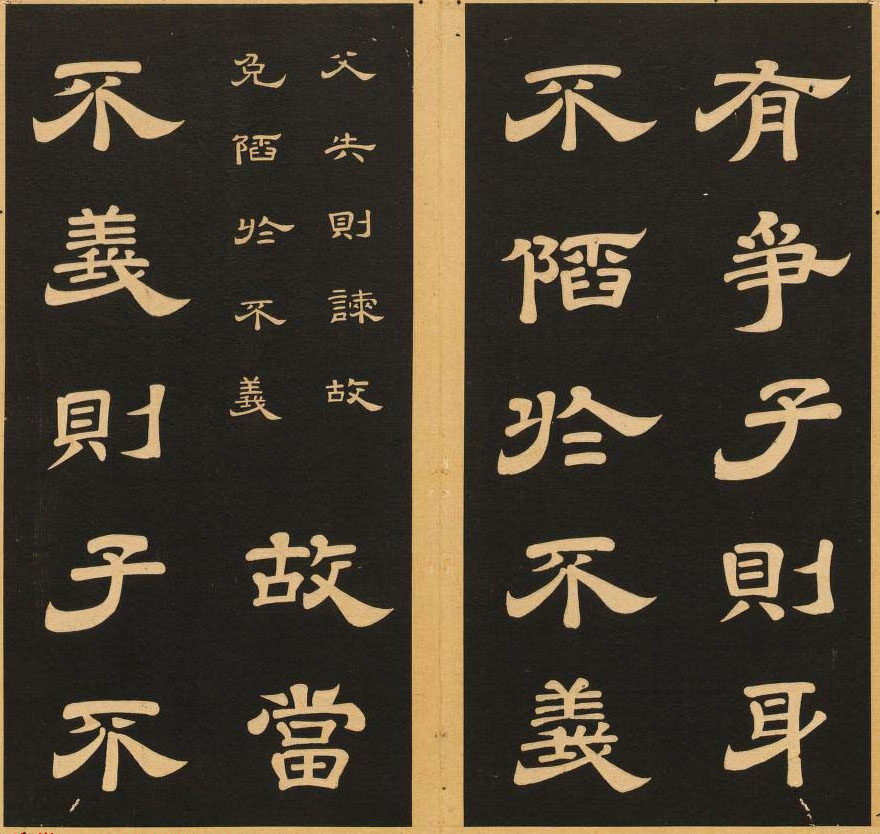 有爭子則身
不陷於不義
父失則諫故
免陷於不義
故當
不義則子不